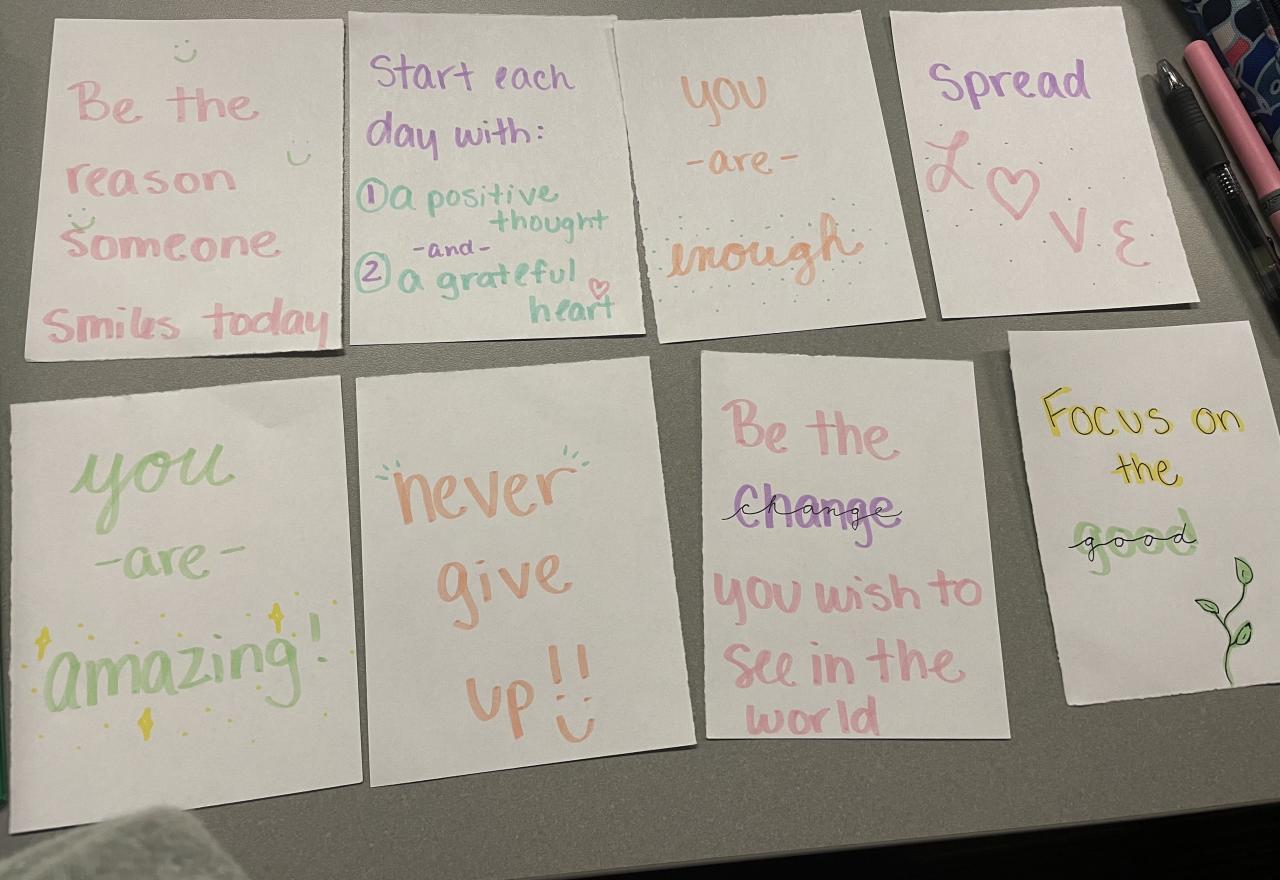 Be the
reason
Someone
Smiles today
Start each
day with:
1 a positive
thought
-and-
2 a grateful
heart
you
-are-
enough
Spread
L♡VE
you
-are-
amazing!
never
give
up!!
Be the
change
you wish to
see in the
world
Focus on
the
good